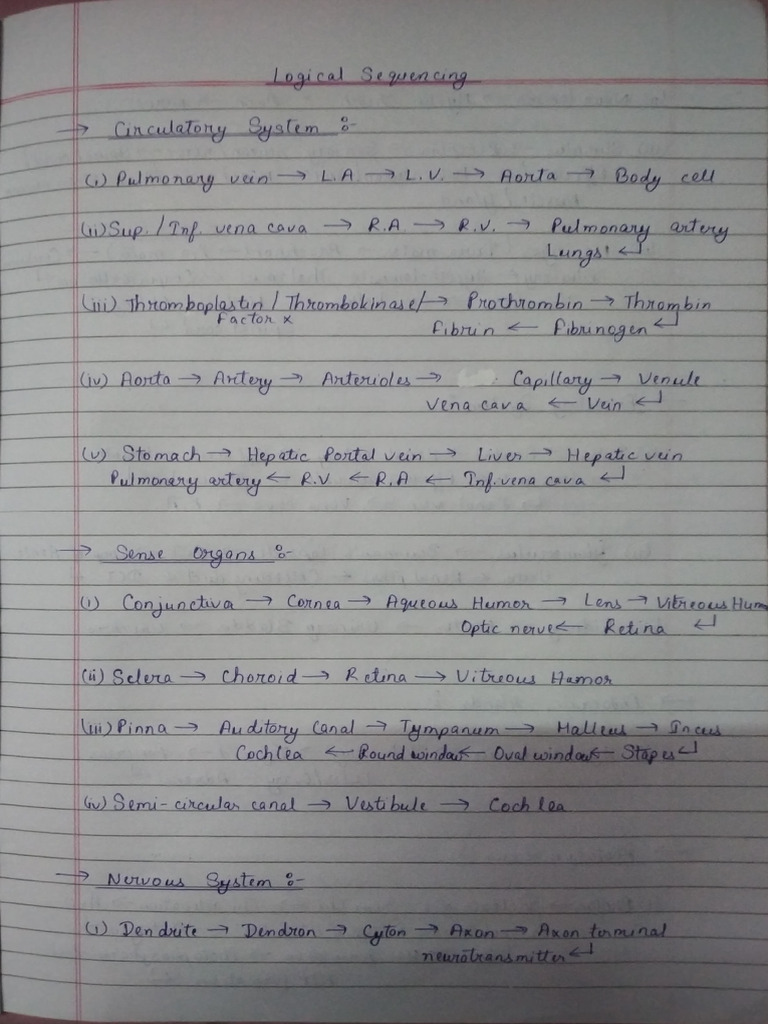 Logical Sequencing
→ Circulatory System :-
(i) Pulmonary vein → L.A → L.V. → Aorta → Body cell
(ii) Sup./Inf. vena cava → R.A. → R.V. → Pulmonary artery
Lungs ↵
(iii) Thromboplastin / Thrombokinase/ → Prothrombin → Thrombin
Factor x
Fibrin ← Fibrinogen ↵
(iv) Aorta → Artery → Arterioles → Capillary → Venule
Vena cava ← Vein ↵
(v) Stomach → Hepatic Portal vein → Liver → Hepatic vein
Pulmonary artery ← R.V ← R.A ← Inf. vena cava ↵
→ Sense Organs :-
(i) Conjunctiva → Cornea → Aqueous Humor → Lens → Vitreous Hum
Optic nerve ← Retina ↵
(ii) Sclera → Choroid → Retina → Vitreous Humor
(iii) Pinna → Auditory Canal → Tympanum → Malleus → Incus
Cochlea ← Round window ← Oval window ← Stapes ↵
(iv) Semi-circular canal → Vestibule → Cochlea
→ Nervous System :-
(i) Dendrite → Dendron → Cyton → Axon → Axon terminal
neurotransmitter ↵